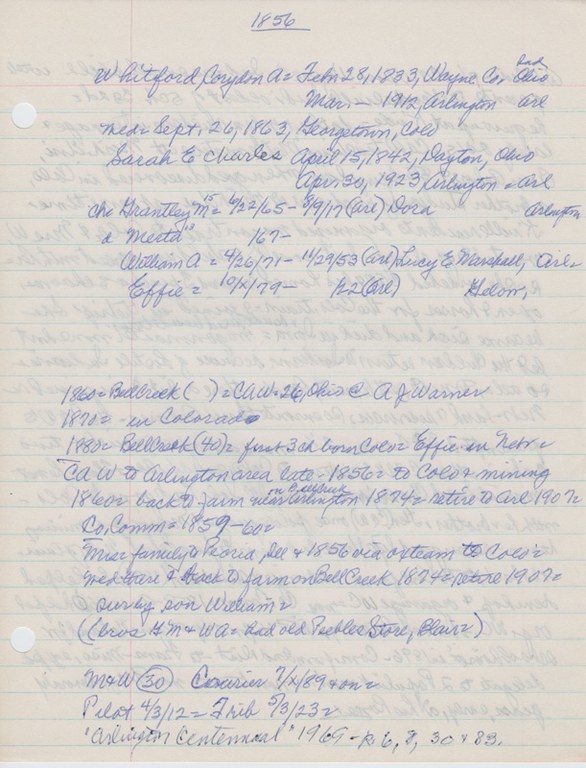 1856
Rad
Whitford, Corydon A = Feb 28, 1833, Wayne Co, Ohio
Mar. - 1912, Arlington Arl
med = Sept, 26, 1863, Georgetown, Colo
Sarah E Charles April 15, 1842, Dayton, Ohio
Apr. 30, 1923, Arlington = Arl
Ch = Grantley M = 15 6/22/65 - 8/9/17 (Arl) Dora Arlington
& Metta 13 /67 -
William A = 4/26/71 - 11/29/53 (Arl) Lucy E Marshall, Arl =
Effie = 10/x/79 - (Arl)
1860 = Bell Creek ( ) = CAW = 26, Ohio @ A J Warner
1870 = - in Colorado
1880 = Bell Creek (40) = first 3 ch born Colo = Effie in Nebr =
CAW to Arlington area late - 1856 = to Colo & mining
1860 = back to farm near Arlington 1874 = retire to Arl 1907 =
Co, Comm = 1859 - 60 =
Misc = family to Peoria, Ill & 1856 via oxteam to Colo =
med there & back to farm on Bell Creek 1874 = retire 1907 =
surv by son William =
((bros G M & WA = had old Peebles Store, Blair =)
M & W (30) Courier 7/x/89 + on =
Pilot 4/3/12 = Trib 5/3/23 =
"Arlington Centennial" 1969 - p. 6, 8, 30 & 83.